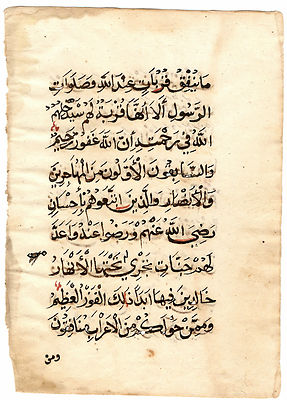 ما ينفق قربات عند الله وصلوات
الرسول ألا إنها قربة لهم سيدخلهم
الله في رحمته إن الله غفور رحيم
والسابقون الأولون من المهاجرين
والأنصار والذين اتبعوهم بإحسان
رضي الله عنهم ورضوا عنه وأعد
لهم جنات تجري تحتها الأنهار
خالدين فيها أبدا ذلك الفوز العظيم
وممن حولكم من الأعراب منافقون
ومن